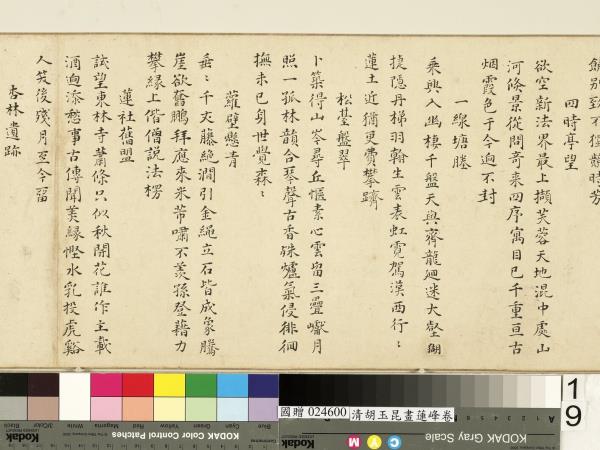 時芳
四時亭望
欲空新法界最上擷芙蓉天地混中處山
河倏景從開奇来四序寓目已千重亘古
烟霞色于今逈不封
一線塘塍
乘興入幽棲千盤天與齊龍廻迷大壑
捿隱丹梯羽翰生雲表虹霓駕漢西行〻
蓮土近猶更費攀躋
松基盤翠
卜築得山岑尋丘愜素心雲留三疊巘月
照一孤林韻合琴聲古香殊爐氣侵徘徊
撫未已身世覺森〻
蘿壁懸青
垂〻千丈藤絶澗引金繩立石皆成象騰
崖欲奮鵬拜應來米芾嘯不羨孫登藉力
攀縁上偕僧說法楞
蓮社舊盟
試望東林寺蕭條只似秋開花誰作主載
酒迥添愁事古傳聞羨縁慳水乳投虎谿
人笑後殘月至今留
杏林遺跡
國贈 024600 清胡玉昆畫蓮峰卷
19
KODAK Color Control Patches
KODAK Gray Scale
Kodak
Kodak
Black
3/Color
White
Magenta
Red
Yellow
Green
Cyan
Blue
A
M
Y
C